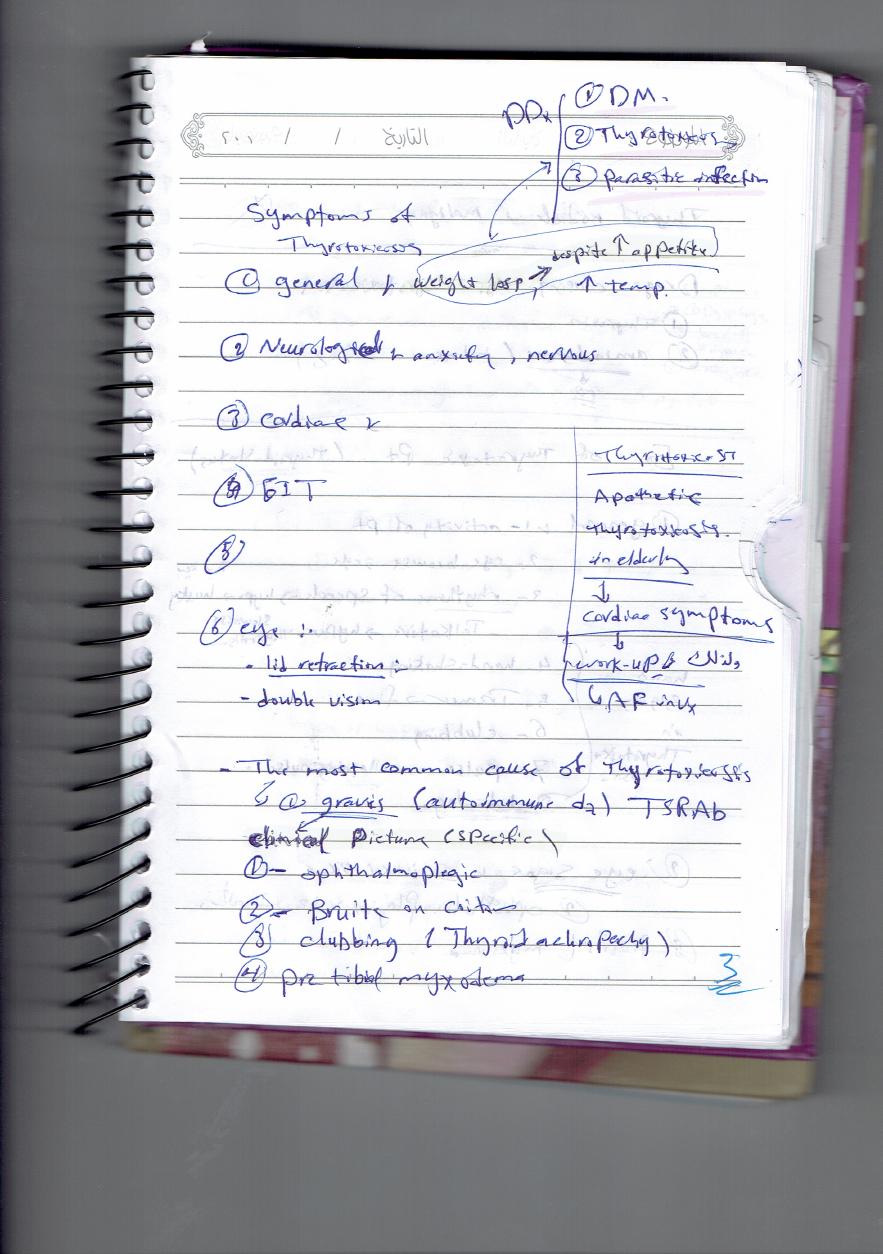 DDx
① DM.
② Thyrotoxicosis
③ parasitic infection
التاريخ / / ٢٠٠
Symptoms of
Thyrotoxicosis
despite ↑ appetite
① general : weight loss, ↑ temp.
② Neurological : anxiety, nervous
③ cardiac :
④ GIT
⑤
⑥ eye :-
- lid retraction :-
- double vision
Thyrotoxicosis
Apathetic
thyrotoxicosis.
in elderly
↓
cardiac symptoms
↓
work-up
↳ AF
- The most common cause of Thyrotoxicosis
① gravis (autoimmune dz) TSRAb
clinical picture (specific)
① - ophthalmoplegic
② - Bruite on
③ clubbing (Thyroid achropachy)
④ pre tibial myxodema
3